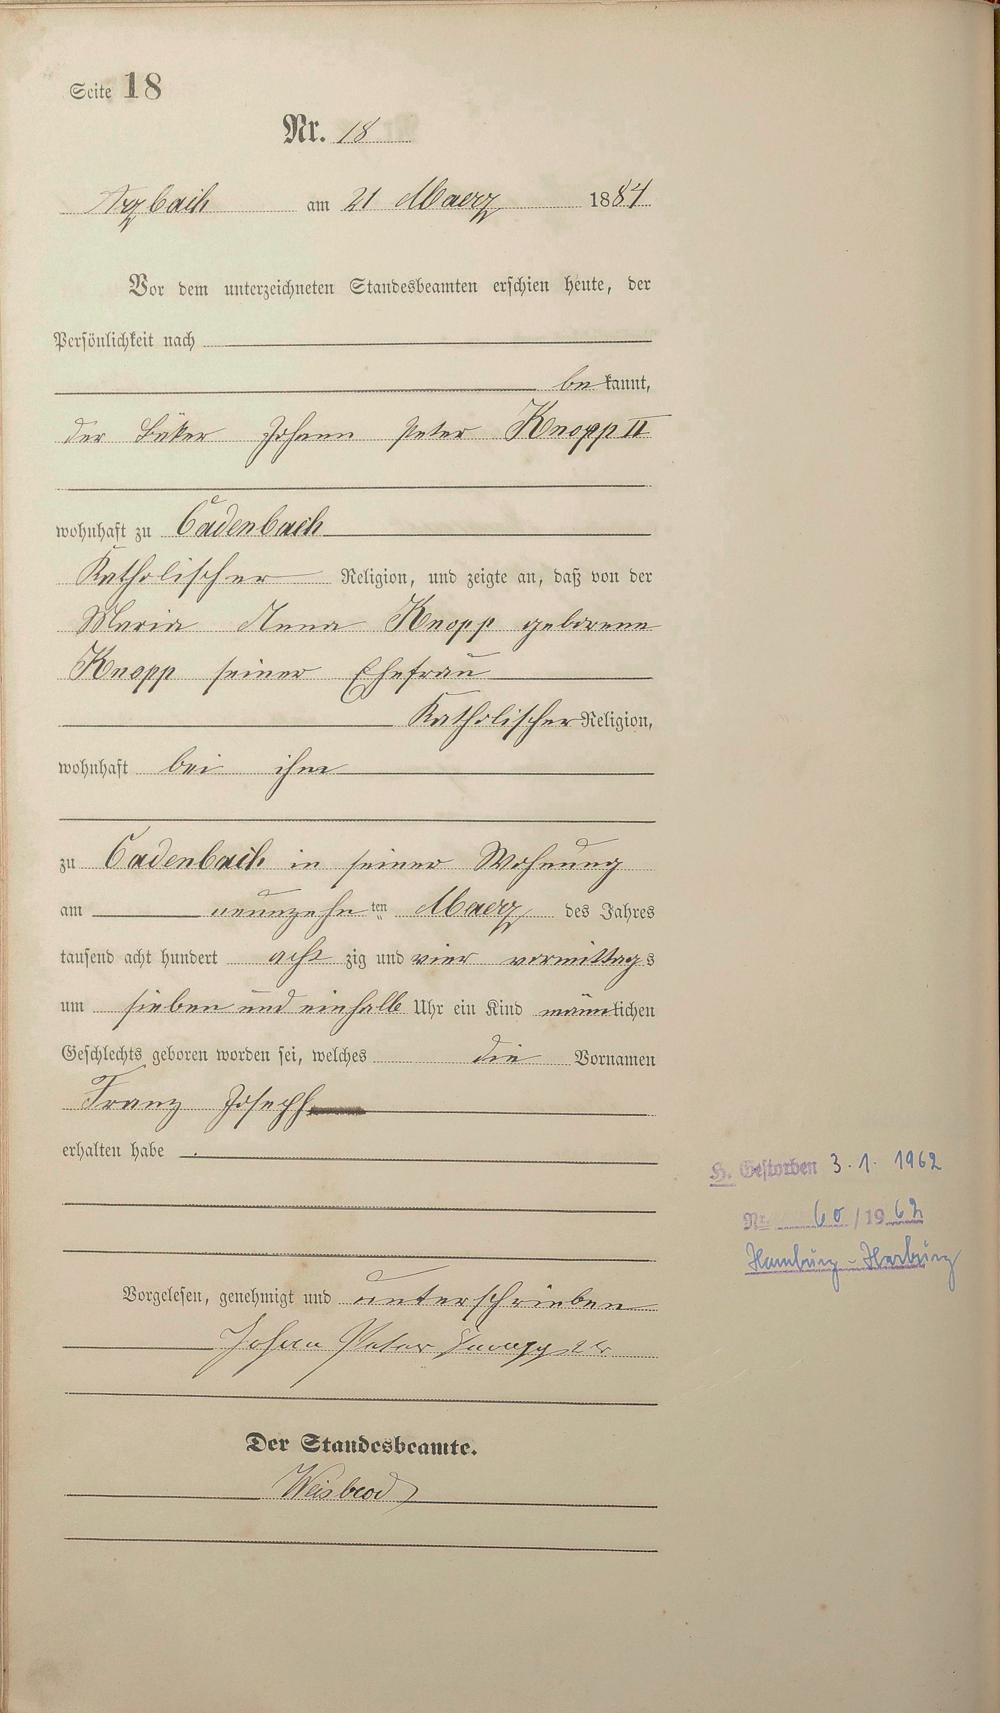 Seite 18
Nr. 18
Arzbach am 21 Maerz 1884
Vor dem unterzeichneten Standesbeamten erschien heute, der
Persönlichkeit nach
be kannt,
der Bäker Johann Peter Knopp II
wohnhaft zu Cadenbach
Katholischer Religion, und zeigte an, daß von der
Maria Anna Knopp geborene
Knopp seiner Ehefrau
Katholischer Religion,
wohnhaft bei ihm
zu Cadenbach in seiner Wohnung
am neunzehn ten Maerz des Jahres
tausend acht hundert acht zig und vier vormittags
um sieben und einhalb Uhr ein Kind männlichen
Geschlechts geboren worden sei, welches die Vornamen
Franz Joseph
erhalten habe .
H. Gestorben 3.1. 1962
Nr. 60/1962
Hamburg-Harburg
Vorgelesen, genehmigt und unterschrieben
Johann Peter Knopp 2 ter
Der Standesbeamte.
Weisbrod